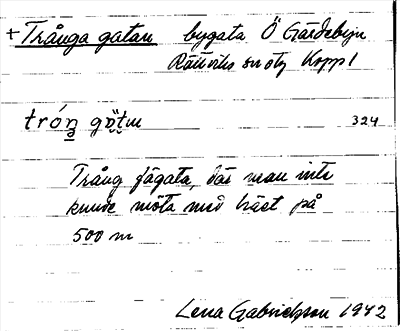 + Trånga gatan bygata Ö Gärdebyn
Rättviks sn öty Koppl
tróŋ̣ə gö̤t̤n 324
Trång fägata, där man inte
kunde möta med häst på
500 m
Lena Gabrielsson 1942